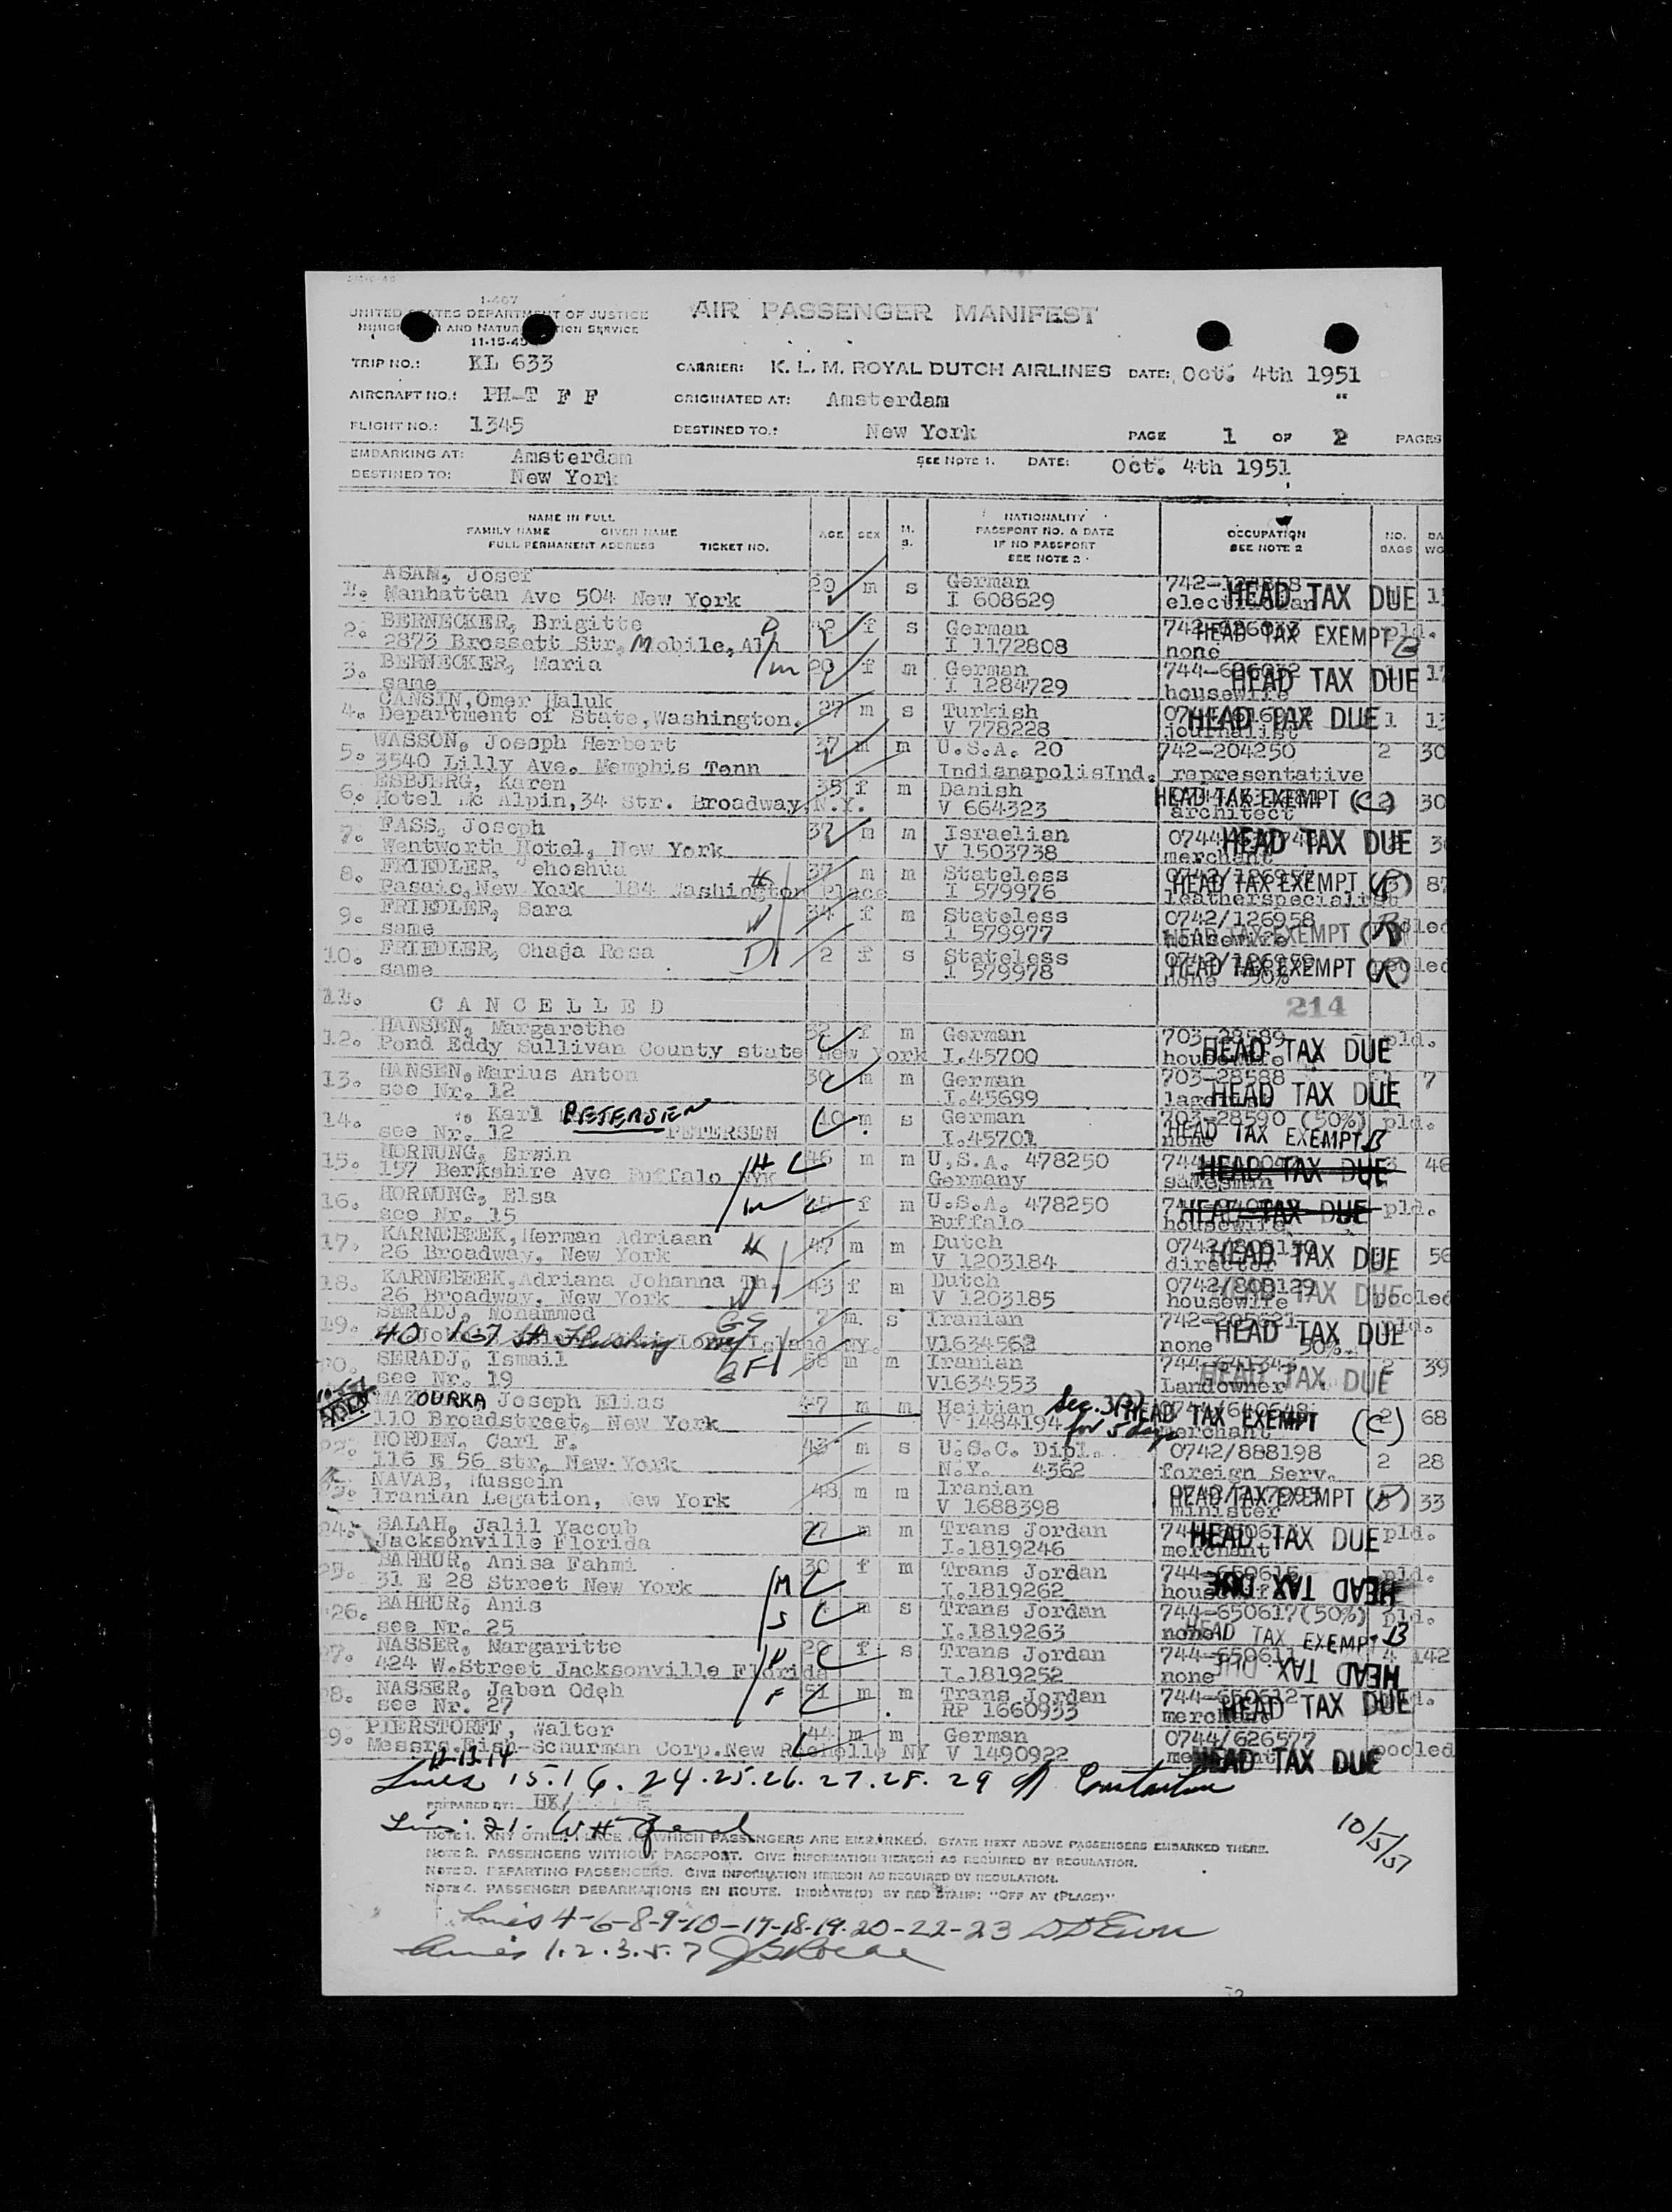 1-407
UNITED STATES DEPARTMENT OF JUSTICE
AND NATUR TION SERVICE
11-15-45
AIR PASSENGER MANIFEST
TRIP NO.: KL 633 CARRIER: K. L. M. ROYAL DUTCH AIRLINES DATE: Oct. 4th 1951
AIRCRAFT NO.: PH-T F F ORIGINATED AT: Amsterdam "
FLIGHT NO.: 1345 DESTINED TO.: New York PAGE 1 OF 2 PAGES
EMBARKING AT: Amsterdam SEE NOTE 1. DATE: Oct. 4th 1951
DESTINED TO: New York
NAME IN FULL
FAMILY NAME GIVEN NAME
FULL PERMANENT ADDRESS TICKET NO.
AGE SEX M. S.
NATIONALITY
PASSPORT NO. & DATE
IF NO PASSPORT
SEE NOTE 2
OCCUPATION
SEE NOTE 2
NO. BAGS
1. ASAM, Josef 29 m s German
Manhattan Ave 504 New York I 608629 HEAD TAX DUE
2. BERNECKER, Brigitte D f s German
2873 Brossett Str. Mobile, Ala I 1172808 none HEAD TAX EXEMPT B
3. BERNECKER, Maria m 29 f m German
same I 1284729 housewife HEAD TAX DUE 17
4. CANSIN, Omer Haluk 27 m s Turkish
Department of State, Washington. V 778228 journalist HEAD TAX DUE 1 13
5. WASSON, Joseph Herbert 37 m m U.S.A. 20 742-204250 2 30
3540 Lilly Ave. Memphis Tenn IndianapolisInd. representative
6. ESBJERG, Karen 35 f m Danish HEAD TAX EXEMPT (C) 30
Hotel Mc Alpin, 34 Str. Broadway, N.Y. V 664323 architect
7. FASS, Joseph 37 m m Israelian
Wentworth Hotel, New York V 1503738 merchant HEAD TAX DUE
8. FRIEDLER, Jehoshua H 37 m m Stateless
Pasaic, New York 184 Washington Place I 579976 leatherspecialist HEAD TAX EXEMPT 87
9. FRIEDLER, Sara W 34 f m Stateless 0742/126958
same I 579977 housewife HEAD TAX EXEMPT (R) pooled
10. FRIEDLER, Chaga Rosa D 2 f s Stateless
same I 579978 none 50% HEAD TAX EXEMPT (R) pooled
11. CANCELLED 214
12. HANSEN, Margarethe 32 f m German 703-28589 pld.
Pond Eddy Sullivan County state New York I.45700 housewife HEAD TAX DUE
13. HANSEN, Marius Anton 30 m m German 703-28588 7
see Nr. 12 I.45699 HEAD TAX DUE
14. " Karl PETERSEN 10 m s German 703-28590 (50%) pld.
see Nr. 12 PETERSEN I.45701 none HEAD TAX EXEMPT B
15. HORNUNG, Erwin H 46 m m U.S.A. 478250
157 Berkshire Ave Buffalo NYK Germany salesman HEAD TAX DUE 3 46
16. HORNUNG, Elsa W 45 f m U.S.A. 478250
see Nr. 15 Buffalo housewife HEAD TAX DUE pld.
17. KARNEBEEK, Herman Adriaan H 47 m m Dutch
26 Broadway, New York V 1203184 director HEAD TAX DUE
18. KARNEBEEK, Adriana Johanna Th. W 43 f m Dutch 0742/808129
26 Broadway, New York V 1203185 housewife HEAD TAX DUE pooled
19. SERADJ, Mohammed GS 7 m. s Iranian
40 167 St. Flushing Long Island NY. V1634562 none 50% HEAD TAX DUE pld.
20. SERADJ, Ismail GF 58 m m Iranian
see Nr. 19 V1634553 Landowner HEAD TAX DUE 2 39
MAZ OURKA, Joseph Elias 47 m m Haitian Sec. 3(2) HEAD TAX EXEMPT (C) 2 68
110 Broadstreet, New York V 1484194 for 5 days merchant
22. NORDEN, Carl F. 43 m s U.S.C. Dipl. 0742/888198 2 28
116 E 56 str, New York N.Y. 4362 foreign Serv.
23. NAVAB, Hussein 48 m m Iranian HEAD TAX EXEMPT 33
Iranian Legation, New York V 1688398 minister
24. SALAH, Jalil Yacoub 27 m m Trans Jordan
Jacksonville Florida I.1819246 merchant HEAD TAX DUE pld.
25. BAHHUR, Anisa Fahmi M 30 f m Trans Jordan 744-650616 pld.
31 E 28 Street New York I.1819262 HEAD TAX DUE
26. BAHHUR, Anis S m s Trans Jordan 744-650617(50%) pld.
see Nr. 25 I.1819263 none HEAD TAX EXEMPT B
27. NASSER, Margaritte 20 f s Trans Jordan 4 142
424 W.Street Jacksonville Florida I.1819252 none HEAD TAX DUE
28. NASSER, Jaben Odeh F 51 m m Trans Jordan 744-650612
see Nr. 27 RP 1660933 HEAD TAX DUE
29. PIERSTORFF, Walter 44 m m German 0744/626577 pooled
Messrs. Fish-Schurman Corp. New Rochelle NY V 1490922 HEAD TAX DUE
12.13.14
Lines 15.16.24.25.26.27.28.29
PREPARED BY:
Line 21.
10/5/51
NOTE 1. ANY OTHER PLACE AT WHICH PASSENGERS ARE EMBARKED. STATE NEXT ABOVE PASSENGERS EMBARKED THERE.
NOTE 2. PASSENGERS WITHOUT PASSPORT. GIVE INFORMATION HEREON AS REQUIRED BY REGULATION.
NOTE 3. DEPARTING PASSENGERS. GIVE INFORMATION HEREON AS REQUIRED BY REGULATION.
NOTE 4. PASSENGER DEBARKATIONS EN ROUTE. INDICATE(D) BY RED STAMP: "OFF AT (PLACE)".
Lines 4-6-8-9-10-17-18-19-20-22-23
Lines 1.2.3.5.7